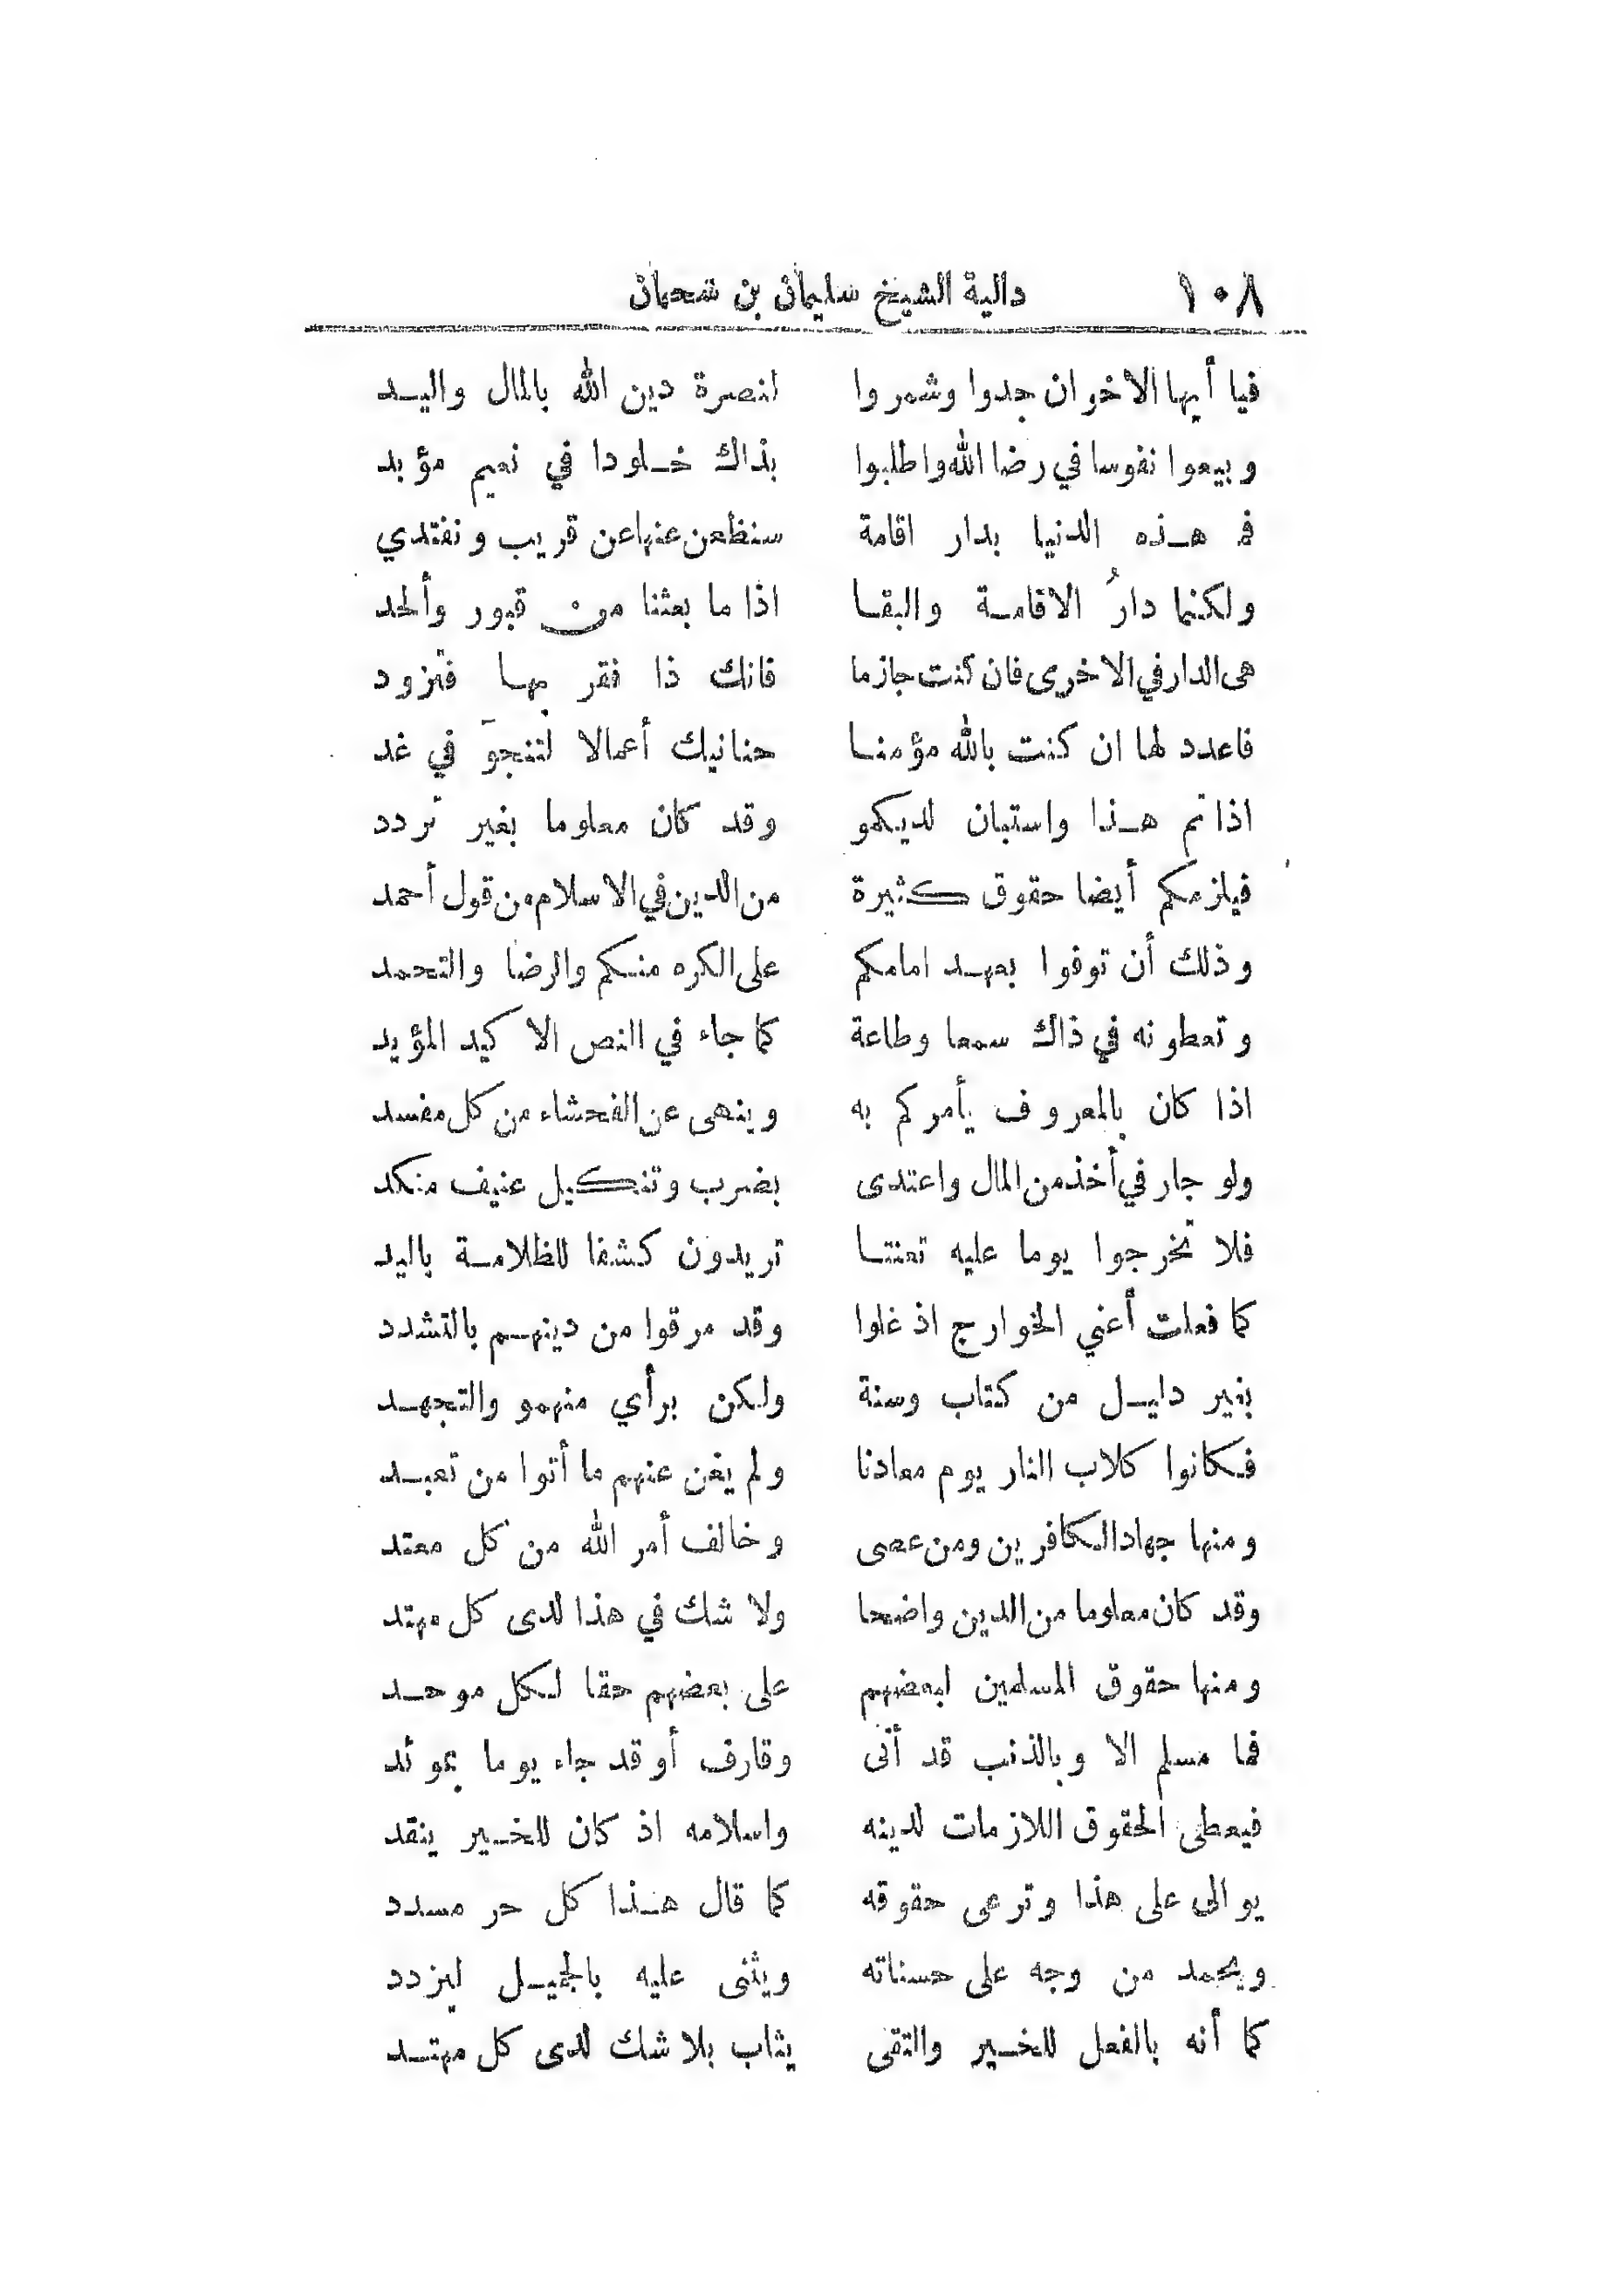 ١٠٨ دالية الشيخ سليمان بن سحمان
فيا أيها الاخوان جدوا وشمروا لنصرة دين الله بالمال واليد
وبيعوا نفوسا في رضا الله واطلبوا بذاك خلودا في نعيم مؤبد
فما هذه الدنيا بدار اقامة سنظعن عنها عن قريب ونفتدي
ولكنما دارُ الاقامة والبقا اذا ما بعثنا من قبور وألحد
هى الدار في الاخرى فان كنت جازما فانك ذا فقر بها فتزود
فاعدد لها ان كنت بالله مؤمنا حنانيك أعمالا لتنجوَ في غد
اذا تم هذا واستبان لديكمو وقد كان معلوما بغير تردد
فيلزمكم أيضا حقوق كثيرة من الدين في الاسلام من قول أحمد
وذلك أن توفوا بعهد امامكم على الكره منكم والرضا والتحمد
وتعطونه في ذاك سمعا وطاعة كما جاء في النص الاكيد المؤيد
اذا كان بالمعروف يأمركم به وينهى عن الفحشاء من كل مفسد
ولو جار في أخذ من المال واعتدى بضرب وتنكيل عنيف منكد
فلا تخرجوا يوما عليه تعنتا تريدون كشفا للظلامة باليد
كما فعلت أعني الخوارج اذ غلوا وقد مرقوا من دينهم بالتشدد
بغير دليل من كتاب وسنة ولكن برأي منهمو والتجهد
فكانوا كلاب النار يوم معادنا ولم يغن عنهم ما أتوا من تعبد
ومنها جهاد الكافرين ومن عصى وخالف أمر الله من كل معتد
وقد كان معلوما من الدين واضحا ولا شك في هذا لدى كل مهتد
ومنها حقوق المسلمين لبعضهم على بعضهم حقا لكل موحد
فما مسلم الا وبالذنب قد أتى وقارف أو قد جاء يوما بموئد
فيعطى الحقوق اللازمات لدينه واسلامه اذ كان للخير ينقد
يوالى على هذا وترعى حقوقه كما قال هذا كل حر مسدد
ويحمد من وجه على حسناته ويثنى عليه بالجميل ليزدد
كما أنه بالفعل للخير والتقى يثاب بلا شك لدى كل مهتد